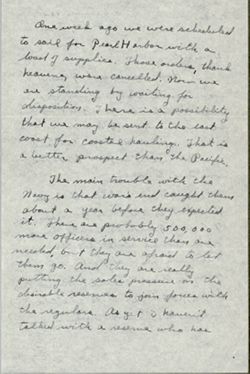 One week ago we were scheduled
to sail for Pearl Harbor with a
load of supplies. Those orders, thank
heavens, were cancelled. Now we
are standing by waiting for
disposition. There is a possibility
that we may be sent to the east
coast for coastal hauling. That is
a better prospect than the Pacific.
The main trouble with the
Navy is that war's end caught them
about a year before they expected
it. There are probably 500,000
more officers in service than are
needed, but they are afraid to let
them go. And they are really
putting the sales pressure on the
desirable reserves to join forces with
the regulars. As yet I haven't
talked with a reserve who has